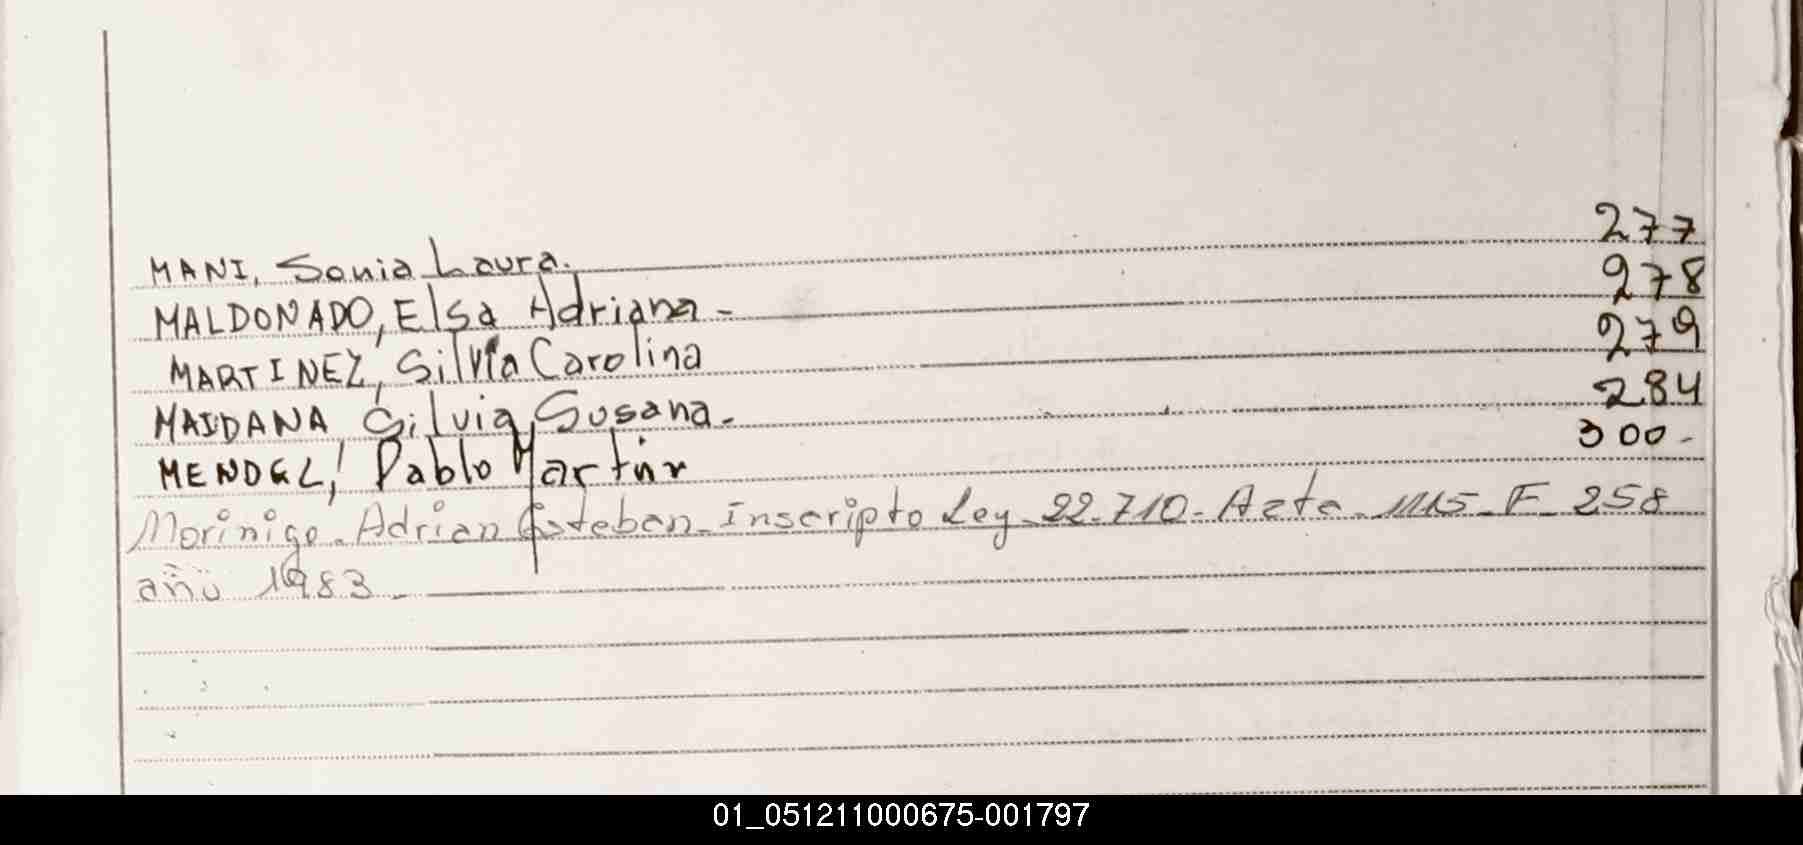 MANI, Sonia Laura. 277
MALDONADO, Elsa Adriana - 278
MARTINEZ, Silvia Carolina 279
MAIDANA Silvia Susana - 284
MENDEL, Pablo Martín 300-
Morinigo. Adrian Esteban - Inscripto Ley - 22.710 - Acta - 1115 - F - 258
año 1983 -
01_051211000675-001797